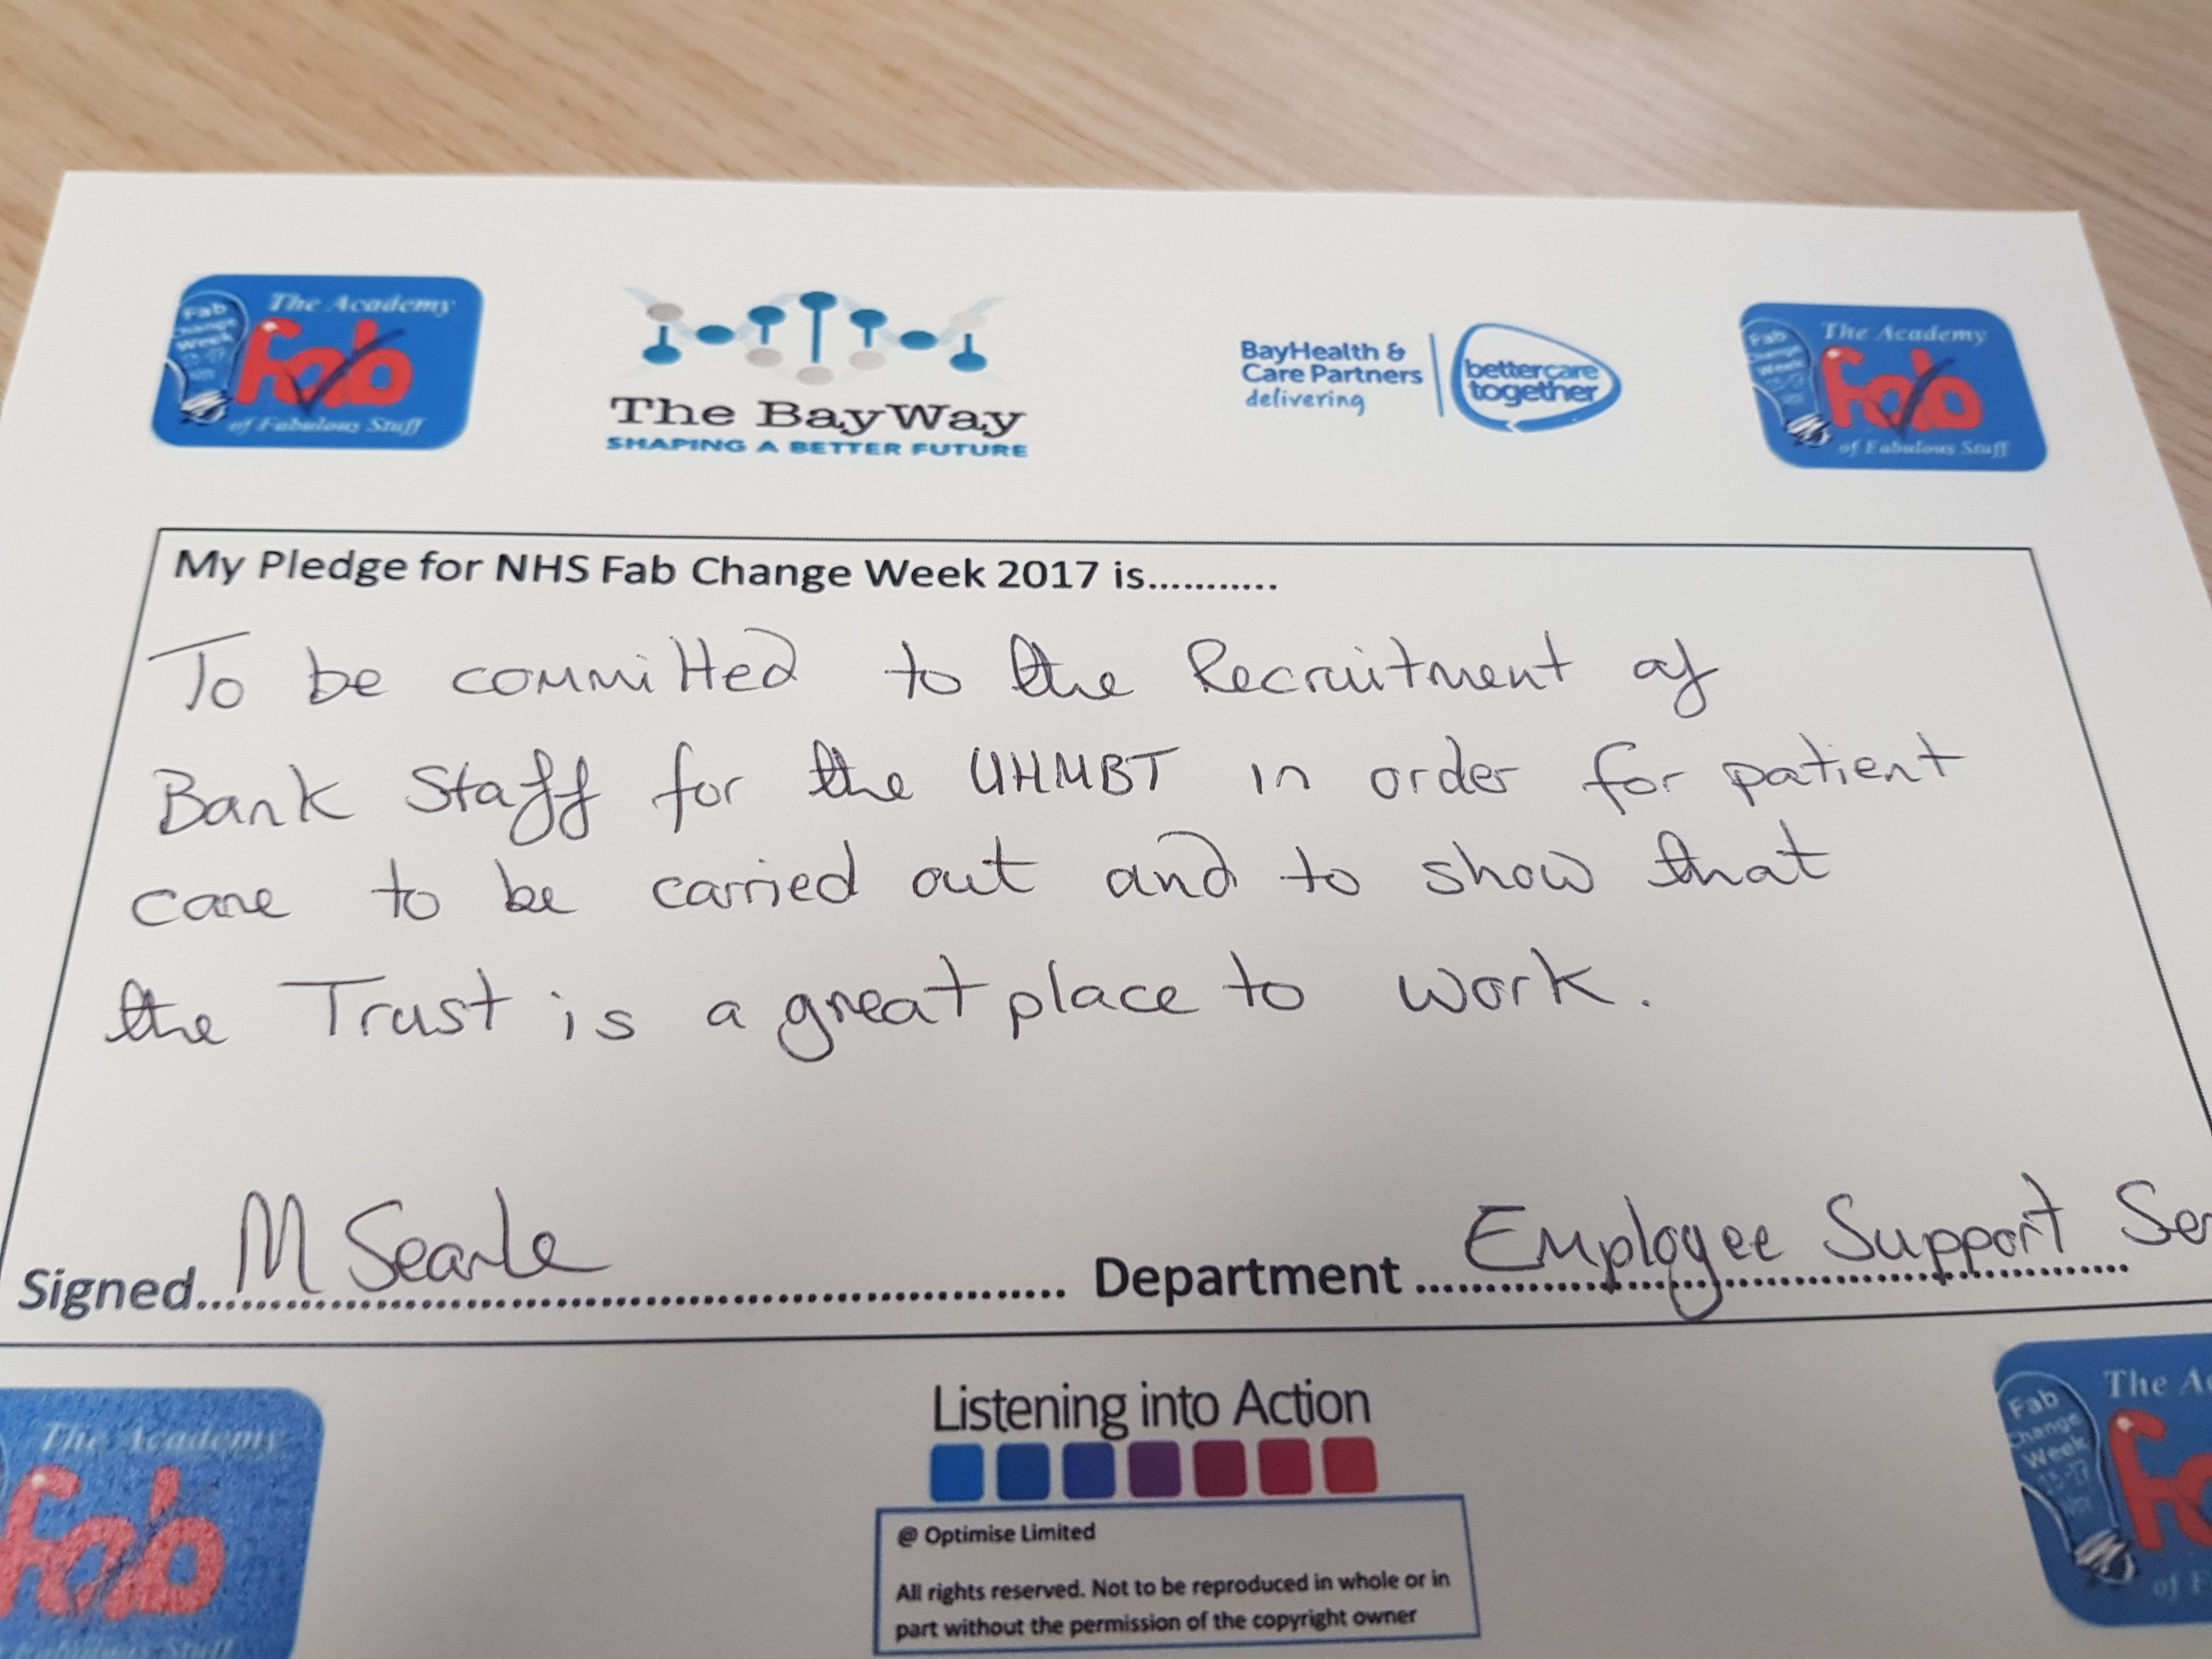 The Academy
Fab
Change
Week
Fab
of Fabulous Stuff
The BayWay
SHAPING A BETTER FUTURE
BayHealth &
Care Partners
delivering
bettercare
together
The Academy
Fab
Change
Week
Fab
of Fabulous Stuff
My Pledge for NHS Fab Change Week 2017 is...........
To be committed to the Recruitment of
Bank Staff for the UHMBT in order for patient
care to be carried out and to show that
the Trust is a great place to work.
Signed M Searle Department Employee Support Ser
Listening into Action
The Academy
Fab
@ Optimise Limited
All rights reserved. Not to be reproduced in whole or in
part without the permission of the copyright owner
The Ac
Fab
Change
Week
of F